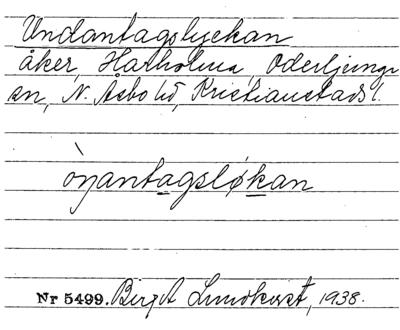 Undantagslyckan
åker, Harholma, Oderljunga
sn, N. Åsbo hd, Kristianstads l.
òŋantagsløkan
Nr 5499. Birgit Lundkvist, 1938.